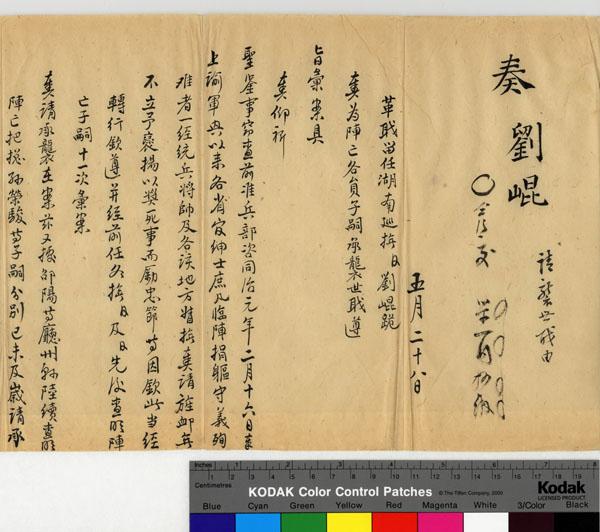 奏 劉崐
請襲世職由
五月二十八日
革職留任湖南巡撫臣劉崐跪
奏為陣亡各員子嗣承襲世職遵
旨彙案具
奏仰祈
聖鑒事竊查前准兵部咨同治元年二月十六日奉
上諭軍興以來各省官紳士庶凡臨陣捐軀守義殉
難者一經統兵將帥及各該地方督撫奏請旌卹無
不立予褒揚以獎死事而勵忠節等因欽此當經
轉行欽遵并經前任各撫臣及臣先後查明陣
亡子嗣十一次彙案
奏請承襲在案茲又據邵陽等廳州縣陸續查明
陣亡把總孫榮駿等子嗣分別已未及歲請承
Inches 1 2 3 4 5 6 7 8
Centimetres 1 2 3 4 5 6 7 8 9 10 11 12 13 14 15 16 17 18 19
KODAK Color Control Patches © The Tiffen Company, 2000
Kodak
LICENSED PRODUCT
Blue Cyan Green Yellow Red Magenta White 3/Color Black